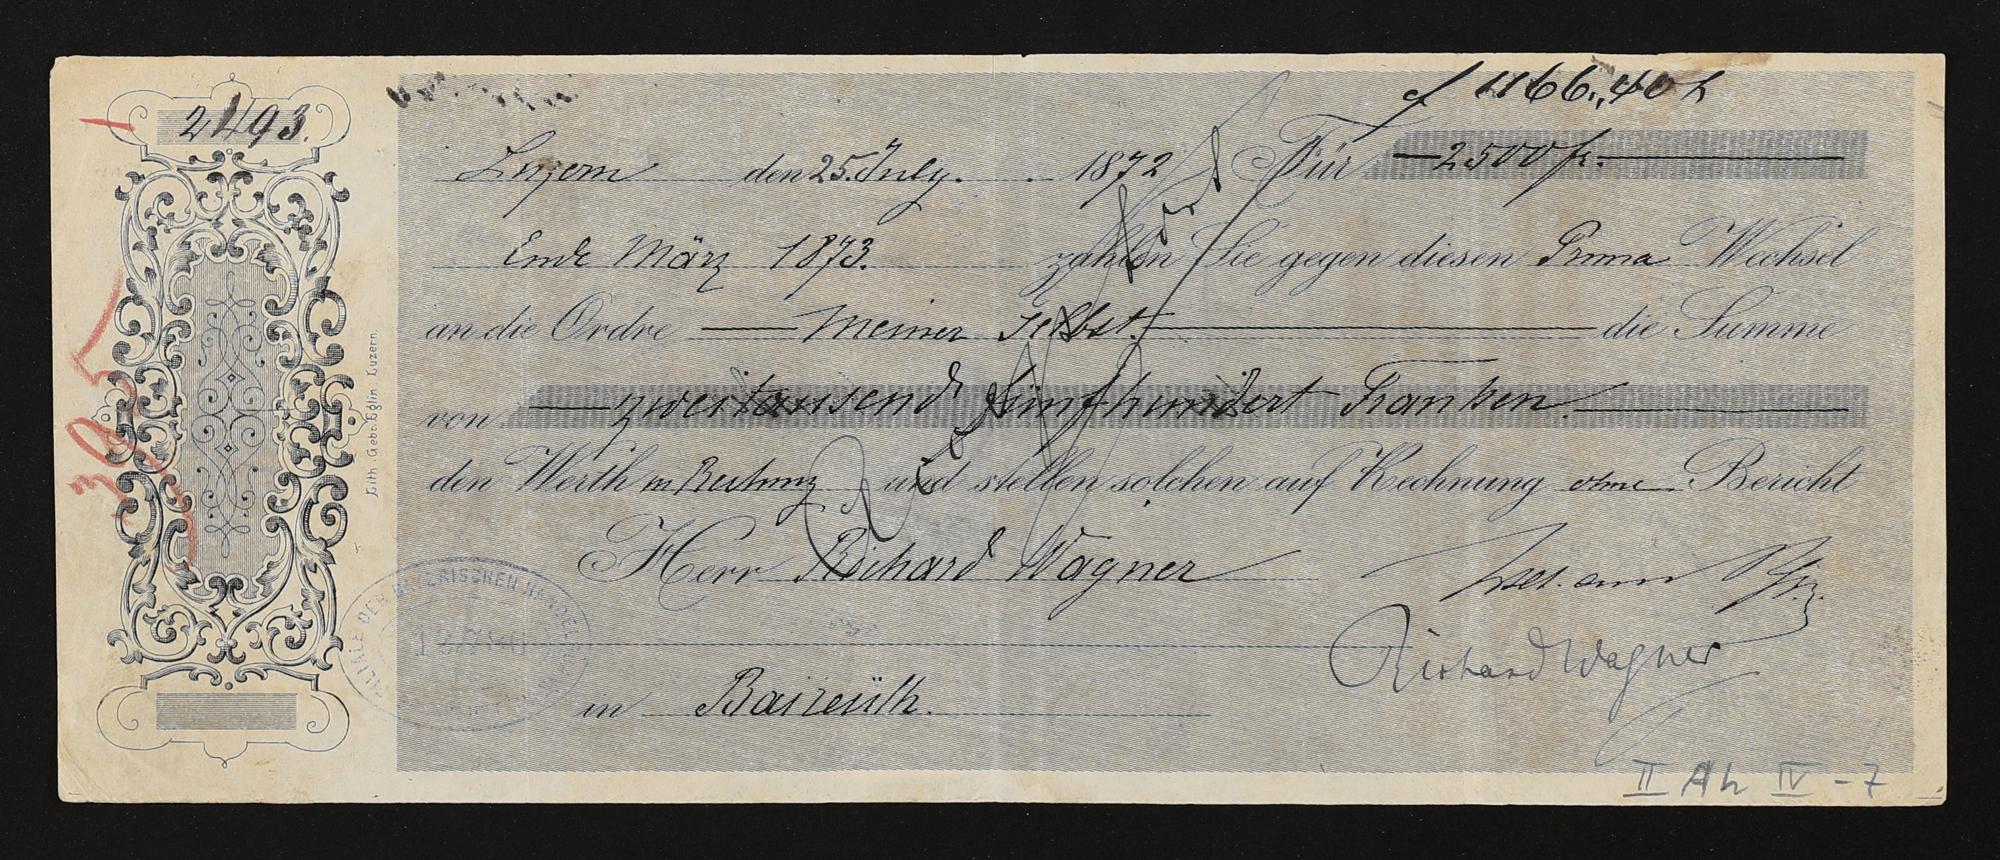 2493.
f 1166,,40 h
Luzern den 25. July. 1872 Für 2500 fr.
Ende März 1873. zahlen Sie gegen diesen Prima Wechsel
an die Ordre Meiner Selbst. die Summe
von zweitausend fünfhundert Franken.
den Werth in Rechnung und stellen solchen auf Rechnung ohne Bericht
Herr Richard Wagner
Richard Wagner
in Baireüth.
Lith. Gebr. Eglin, Luzern.
FILIALE DER BAYERISCHEN HANDELSBANK
395
II Ah IV - 7